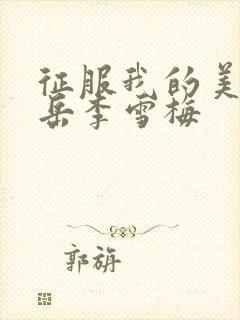 征服我的美
岳李雪梅
郭旃